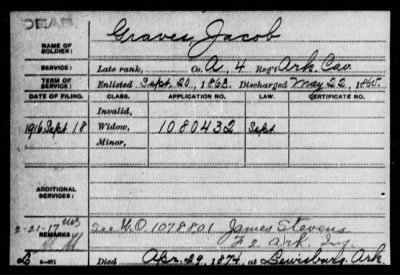 DEAD
Graves, Jacob
NAME OF SOLDIER:
SERVICE: Late rank, Co. A, 4 Reg't Ark. Cav
TERM OF SERVICE: Enlisted Sept. 20, 1863. Discharged May 22, 1865.
DATE OF FILING. CLASS. APPLICATION NO. LAW. CERTIFICATE NO.
Invalid,
1916 Sept 18 Widow, 1080432 Sept
Minor,
ADDITIONAL SERVICES:
2-21-17 See W.O. 1078801 James Stevens
REMARKS: F 2 Ark. Inf.
Died Apr. 29, 1874, at Lewisburg, Ark